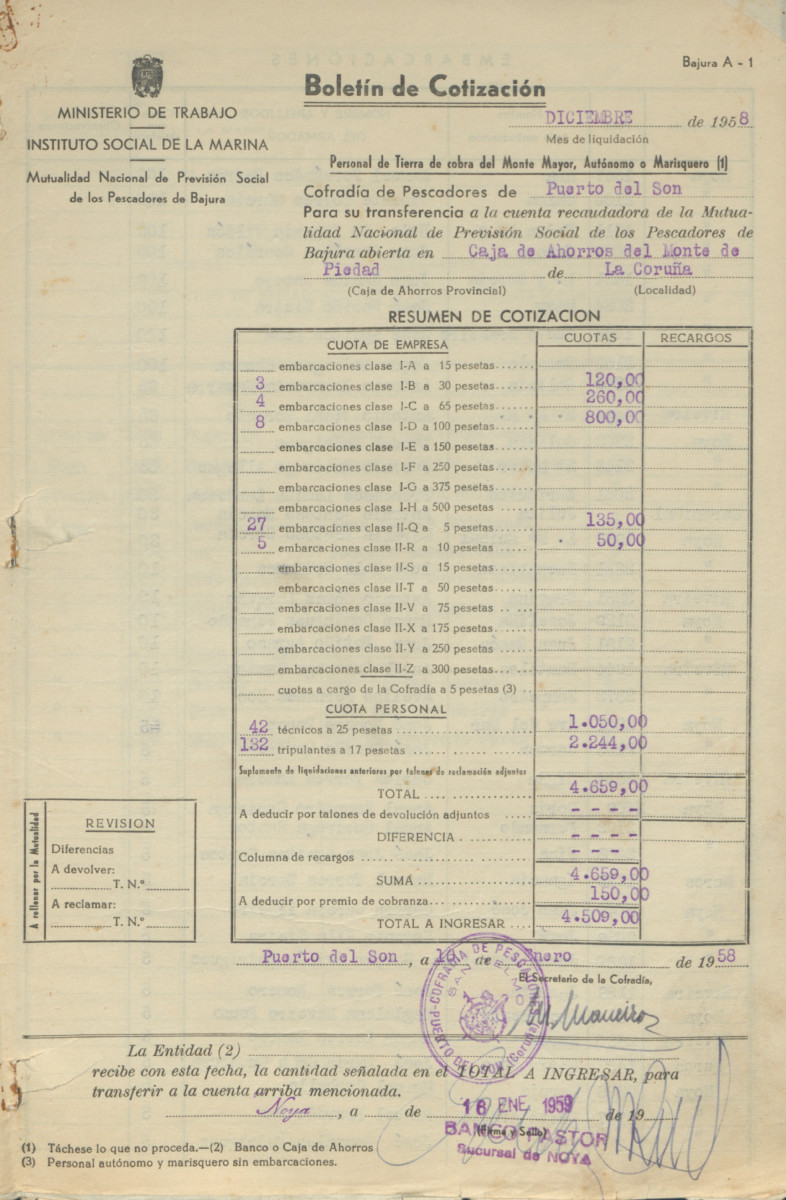 Bajura A - 1
MINISTERIO DE TRABAJO
INSTITUTO SOCIAL DE LA MARINA
Mutualidad Nacional de Previsión Social
de los Pescadores de Bajura
Boletín de Cotización
DICIEMBRE de 1958
Mes de liquidación
Personal de Tierra de cobra del Monte Mayor, Autónomo o Marisquero (1)
Cofradía de Pescadores de Puerto del Son
Para su transferencia a la cuenta recaudadora de la Mutua-
lidad Nacional de Previsión Social de los Pescadores de
Bajura abierta en Caja de Ahorros del Monte de
Piedad de La Coruña
(Caja de Ahorros Provincial) (Localidad)
RESUMEN DE COTIZACION
CUOTA DE EMPRESA CUOTAS RECARGOS
embarcaciones clase I-A a 15 pesetas
3 embarcaciones clase I-B a 30 pesetas 120,00
4 embarcaciones clase I-C a 65 pesetas 260,00
8 embarcaciones clase I-D a 100 pesetas 800,00
embarcaciones clase I-E a 150 pesetas
embarcaciones clase I-F a 250 pesetas
embarcaciones clase I-G a 375 pesetas
embarcaciones clase I-H a 500 pesetas
27 embarcaciones clase II-Q a 5 pesetas 135,00
5 embarcaciones clase II-R a 10 pesetas 50,00
embarcaciones clase II-S a 15 pesetas
embarcaciones clase II-T a 50 pesetas
embarcaciones clase II-V a 75 pesetas
embarcaciones clase II-X a 175 pesetas
embarcaciones clase II-Y a 250 pesetas
embarcaciones clase II-Z a 300 pesetas
cuotas a cargo de la Cofradía a 5 pesetas (3)
CUOTA PERSONAL
42 técnicos a 25 pesetas 1.050,00
132 tripulantes a 17 pesetas 2.244,00
Suplemento de liquidaciones anteriores por talones de reclamación adjuntos
TOTAL 4.659,00
A deducir por talones de devolución adjuntos - - - -
DIFERENCIA - - - -
Columna de recargos - - -
SUMA 4.659,00
A deducir por premio de cobranza 150,00
TOTAL A INGRESAR 4.509,00
A rellenar por la Mutualidad
REVISION
Diferencias
A devolver:
T. N.º
A reclamar:
T. N.º
Puerto del Son, a 16 de Enero de 1958
El Secretario de la Cofradía,
COFRADIA DE PESCADORES
SAN TELMO
PUERTO DEL SON (Coruña)
M. Maneiro
La Entidad (2)
recibe con esta fecha, la cantidad señalada en el TOTAL A INGRESAR, para
transferir a la cuenta arriba mencionada.
Noya, a de de 19
16 ENE 1959
(Firma y Sello)
BANCO PASTOR
Sucursal de NOYA
(1) Táchese lo que no proceda.—(2) Banco o Caja de Ahorros
(3) Personal autónomo y marisquero sin embarcaciones.